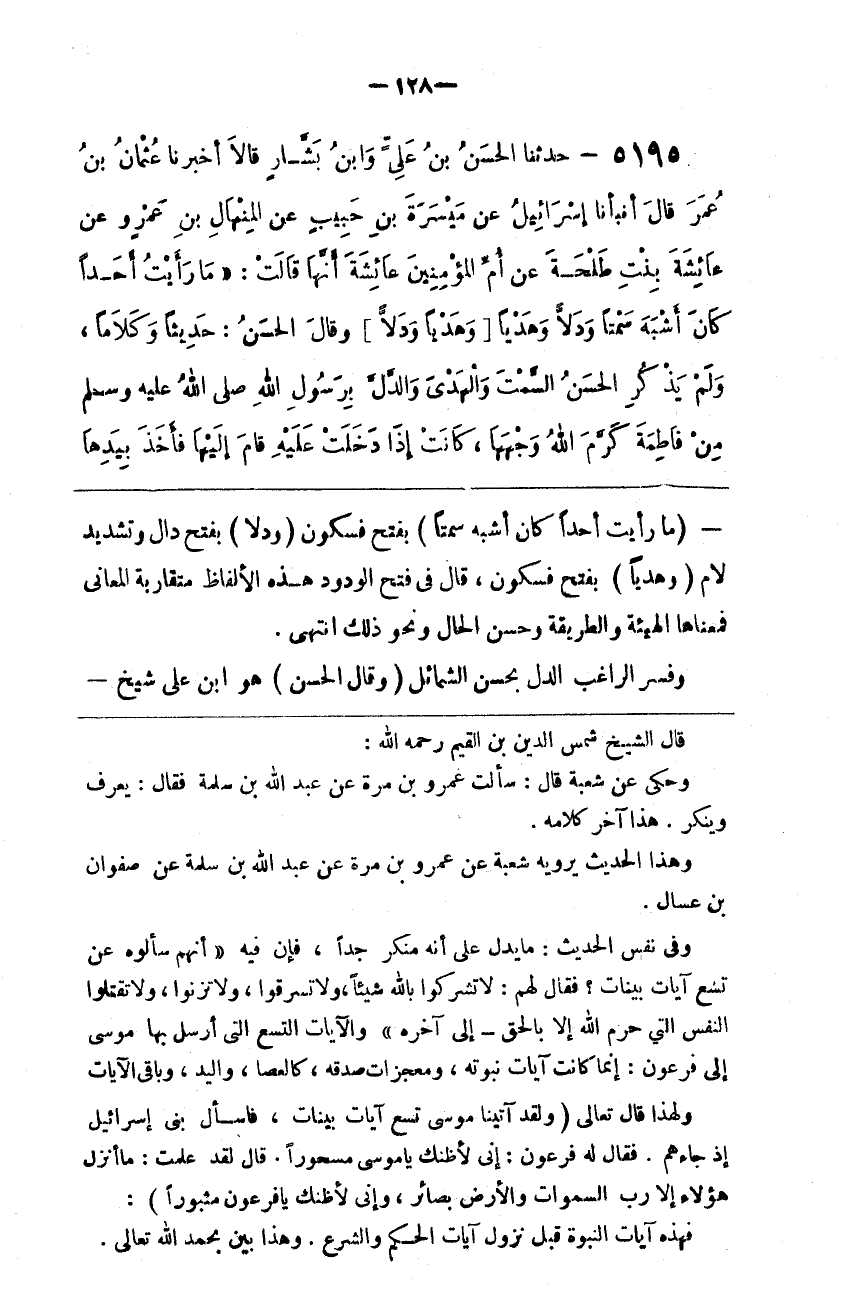 — ١٢٨ —
٥١٩٥ – حدثنا الحَسَنُ بنُ عَلِيٍّ وَابنُ بَشَّـارٍ قالاَ أخبرنا عُثْمانُ بنُ
عُمَرَ قالَ أنبأنا إسْرَائِيلُ عن مَيْسَرَةَ بنِ حَبِيبٍ عن المِنْهَالِ بنِ عَمْرٍو عن
عَائِشَةَ بِنْتِ طَلْحَـةَ عن أُمِّ المُؤْمِنِينَ عائِشَةَ أَنَّهَا قالَتْ : « مَا رَأَيْتُ أَحَـداً
كَانَ أَشْبَهَ سَمْتاً وَدَلاًّ وَهَدْياً [ وَهَدْياً وَدَلاًّ ] وقالَ الحَسَنُ : حَدِيثاً وَكَلَاماً ،
وَلَمْ يَذْكُرِ الحَسَنُ السَّمْتَ وَالْهَدْىَ وَالدَّلَّ بِرَسُولِ اللهِ صلى اللهُ عليه وسلم
مِنْ فَاطِمَةَ كَرَّمَ اللهُ وَجْهَهَا ، كَانَتْ إِذَا دَخَلَتْ عَلَيْهِ قامَ إِلَيْهَا فأَخَذَ بِيَدِها
— (ما رأيت أحداً كان أشبه سمتاً ) بفتح فسكون ( ودلا ) بفتح دال وتشديد
لام ( وهدياً ) بفتح فسكون ، قال فى فتح الودود هـذه الألفاظ متقاربة المعانى
فمعناها الهيئة والطريقة وحسن الحال ونحو ذلك انتهى .
وفسر الراغب الدل بحسن الشمائل ( وقال الحسن ) هو ابن على شيخ —
قال الشيخ شمس الدين بن القيم رحمه الله :
وحكى عن شعبة قال : سألت عمرو بن مرة عن عبد الله بن سلمة فقال : يعرف
وينكر . هذا آخر كلامه .
وهذا الحديث يرويه شعبة عن عمرو بن مرة عن عبد الله بن سلمة عن صفوان
بن عسال .
وفى نفس الحديث : مايدل على أنه منكر جداً ، فإن فيه « أنهم سألوه عن
تسع آيات بينات ؟ فقال لهم : لاتشركوا بالله شيئاً ،ولاتسرقوا ، ولاتزنوا ، ولاتقتلوا
النفس التي حرم الله إلا بالحق – إلى آخره » والآيات التسع التى أرسل بها موسى
إلى فرعون : إنما كانت آيات نبوته ، ومعجزات صدقه ، كالعصا ، واليد ، وباقى الآيات
ولهذا قال تعالى ( ولقد آتينا موسى تسع آيات بينات ، فاسـأل بنى إسرائيل
إذ جاءهم . فقال له فرعون : إنى لأظنك ياموسى مسحوراً . قال لقد علمت : ماأنزل
هؤلاء إلا رب السموات والأرض بصائر ، وإنى لأظنك يافرعون مثبوراً ) :
فهذه آيات النبوة قبل نزول آيات الحكم والشرع . وهذا بين بحمد الله تعالى .